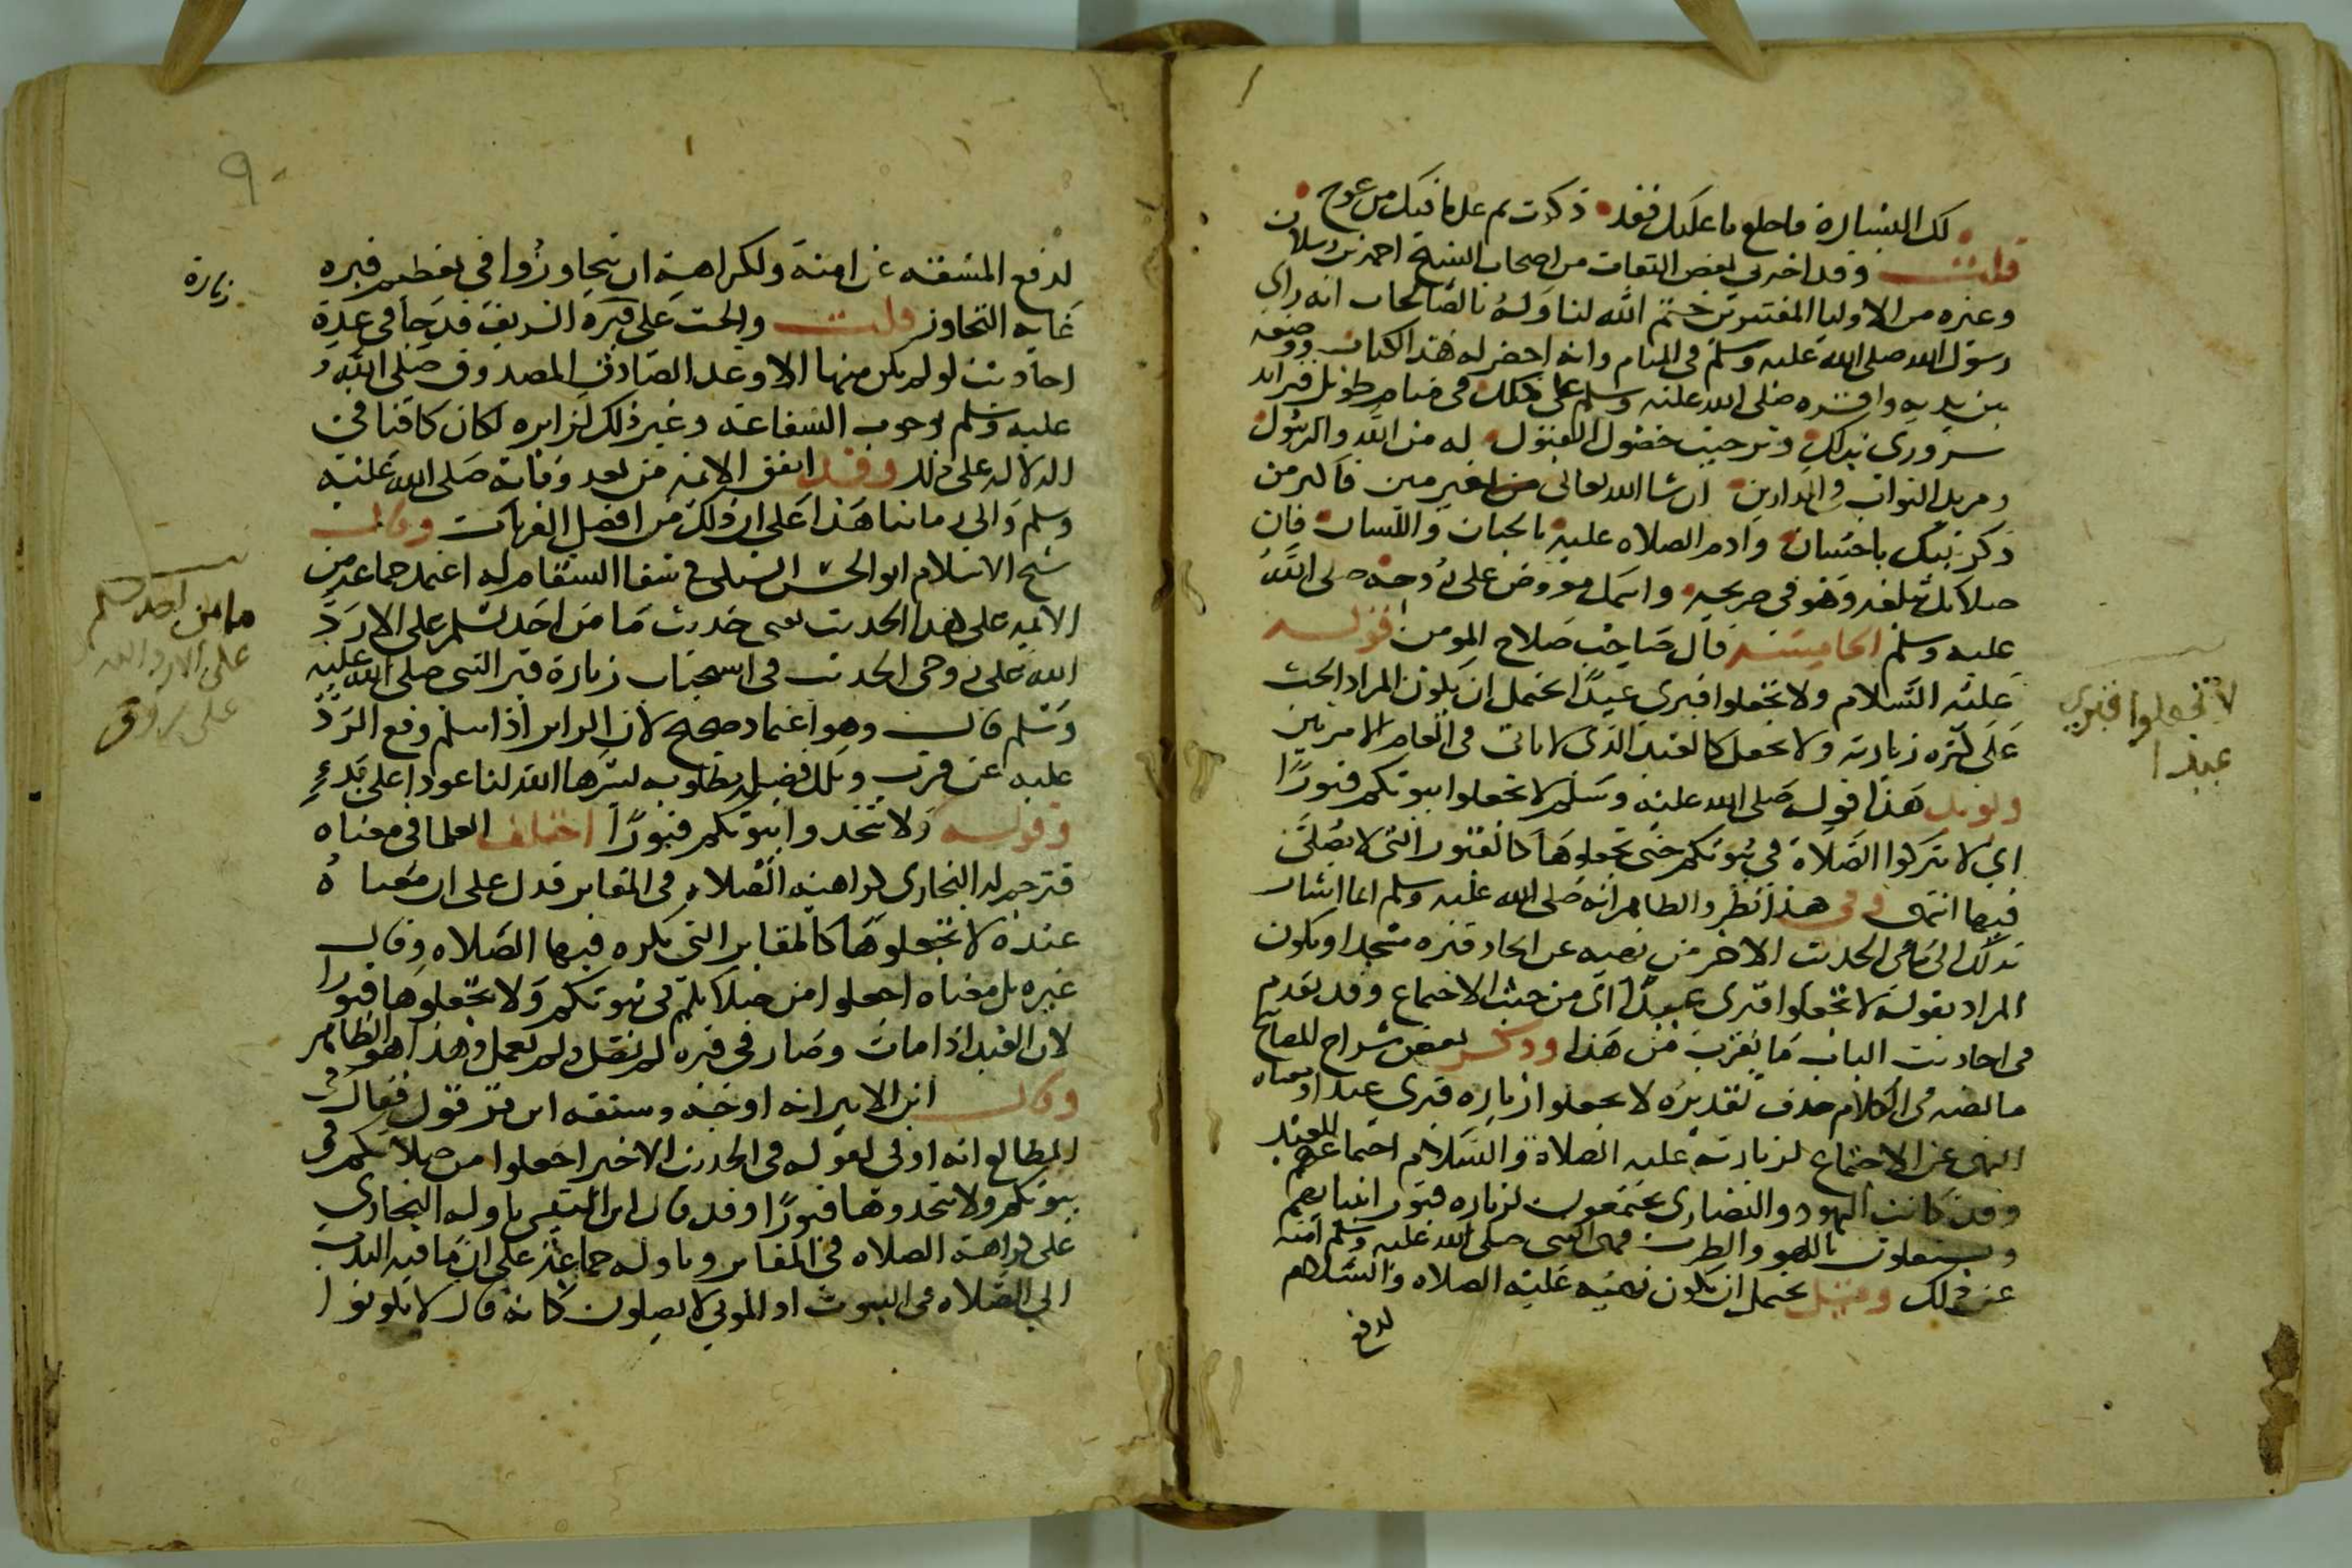 لك البشارة فاخلع ما عليك فقد ذكرت ثم على ما فيك من عوج
قلت وقد اخبرني بعض الثقات من اصحاب الشيخ احمد بن رسلان
وغيره من الاوليا المعتبرين ختم الله لنا وله بالصالحات انه راى
رسول الله صلى الله عليه وسلم في المنام وانه احضر له هذا الكتاب ووضعه
بين يديه واقره صلى الله عليه وسلم على ذلك في منام طويل فزاد
سروري بذلك وترجيت حصول القبول له من الله والرسول
ومزيد الثواب في الدارين ان شا الله تعالى فاكثر من
ذكر نبيك باحسان وادم الصلاه عليه بالجنان واللسان فان
صلاتك تبلغه وهو في ضريحه واسمك معروض على روحه صلى الله
عليه وسلم الخامسة قال صاحب سلاح المومن قوله
عليه السلام ولا تجعلوا قبري عيدًا يحتمل ان يكون المراد الحث
على كثرة زيارته ولا يجعل كالعيد الذى لا ياتى في العام الا مرتين
ويويد هذا قوله صلى الله عليه وسلم لا تجعلوا بيوتكم قبورًا
اي لا تتركوا الصلاة في بيوتكم حتى تجعلوها كالقبور التى لا يصلى
فيها انتهى وفى هذا نظر والظاهر انه صلى الله عليه وسلم انما اشار
بذلك الى ما في الحديث الاخر من نهيه عن اتخاذ قبره مسجدا ويكون
المراد بقوله لا تجعلوا قبرى عيدًا اى من حيث الاجتماع وقد تقدم
في احاديث الباب ما يقرب من هذا وذكر بعض شراح المصابيح
ما نصه في الكلام حذف تقديره لا تجعلوا زيارة قبري عيدا ومعناه
النهى عن الاجتماع لزيارته عليه الصلاة والسلام اجتماعهم للعيد
وقد كانت اليهود والنصارى يجتمعون لزياره قبور انبيايهم
ويشتغلون باللهو والطرب فنهى النبي صلى الله عليه وسلم امته
عن ذلك وقيل يحتمل ان يكون نهيه عليه الصلاه والسلام
لدفع
لا تجعلوا قبري
عيدا
٩٠
لدفع المشقه عن امته ولكراهة ان يتجاوزوا في تعظيم قبره
غاية التجاوز قلت والحث على زيارة قبره الشريف قد جا في عدة
زيارة
احاديث لو لم يكن منها الا وعد الصادق المصدوق صلى الله
عليه وسلم بوجوب الشفاعة وغير ذلك لزايره لكان كافيا في
الدلالة على ذلك وقد اتفق الايمة من بعد وفاته صلى الله عليه
وسلم والى زماننا هذا على ان ذلك من افضل القربات وقال
شيخ الاسلام ابو الحسن السبكى في شفا السقام له اعتمد جماعة من
الايمة على هذا الحديث يعنى حديث ما من احد يسلم على الا رد
الله على روحى الحديث في استحباب زيارة قبر النبى صلى الله عليه
وسلم قال وهو اعتماد صحيح لان الزاير اذا سلم وقع الرد
عليه عن قرب وتلك فضيلة مطلوبه يسرها الله لنا عودا على بدء
وقوله ولا تتخذوا بيوتكم قبورًا اختلف العلما في معناه
فترجم له البخارى كراهية الصلاه في المقابر فدل على ان معناه
عنده لا تجعلوها كالمقابر التى يكره فيها الصلاه وقال
غيره بل معناه اجعلوا من صلاتكم في بيوتكم ولا تجعلوها قبورا
لان العبد اذا مات وصار في قبره لم يصل ولم يعمل وهذا هو الظاهر
وقال ابن الاثير انه اوجه وسبقه ابن قرقول فقال في
المطالع انه اولى لقوله في الحديث الاخير اجعلوا من صلاتكم في
بيوتكم ولا تتخذوها قبورًا وقد قال ابن التين تاوله البخارى
على كراهة الصلاه في المقابر وتاوله جماعة على ان ما فيه الندب
الى الصلاه في البيوت اذ الموتى لا يصلون كانه قال لا تكونوا
ما من احد يسلم
على الا رد الله
على روحى